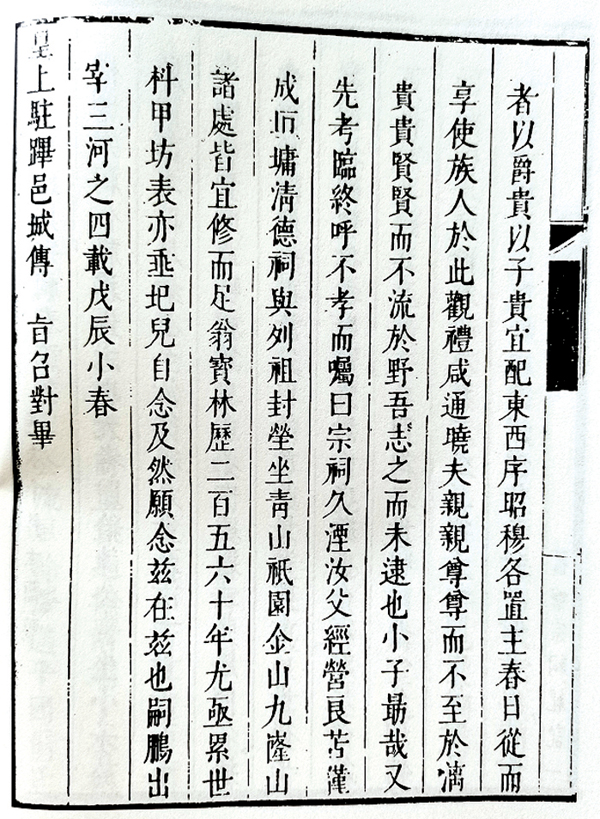 者以爵貴以子貴宜配東西序昭穆各置主春日從而
享使族人於此觀禮咸通曉夫親親尊尊而不至於漓
貴貴賢賢而不流於野吾志之而未逮也小子勗哉又
先考臨終呼不孝而囑曰宗祠久湮汝父經營艮苦僅
成石墉淸德祠與列祖封塋坐靑山祇園金山九隆山
諸處皆宜修而足翁寶林歷二百五六十年尤亟累世
科甲坊表亦亟圯兒自念及然願念茲在茲也嗣鵬出
宰三河之四載戊辰小春
皇上駐蹕邑城傳 旨召對畢